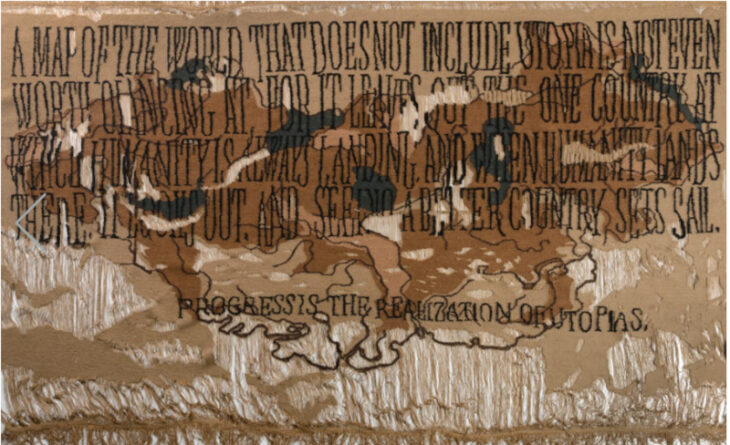 A MAP OF THE WORLD THAT DOES NOT INCLUDE UTOPIA IS NOT EVEN
WORTH GLANCING AT, FOR IT LEAVES OUT THE ONE COUNTRY AT
WHICH HUMANITY IS ALWAYS LANDING. AND WHEN HUMANITY LANDS
THERE, IT LOOKS OUT, AND SEEING A BETTER COUNTRY, SETS SAIL.
PROGRESS IS THE REALIZATION OF UTOPIAS.